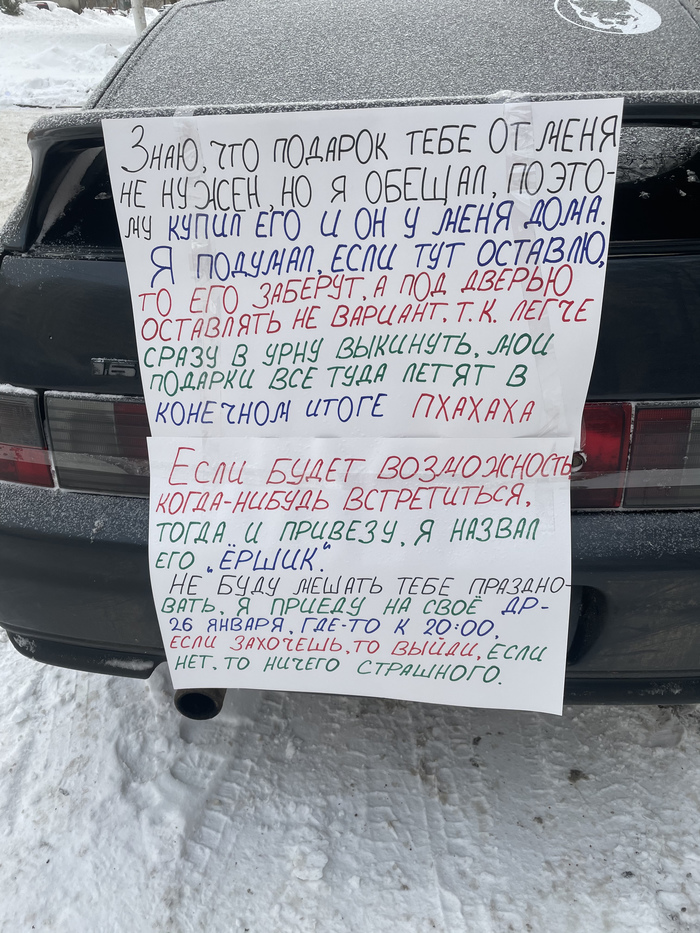 Знаю, что подарок тебе от меня
не нужен, но я обещал, поэто-
му купил его и он у меня дома.
Я подумал, если тут оставлю,
то его заберут, а под дверью
оставлять не вариант, т.к. легче
сразу в урну выкинуть, мои
подарки все туда летят в
конечном итоге пхахаха
Если будет возможность
когда-нибудь встретиться,
тогда и привезу, я назвал
его „Ёршик."
Не буду мешать тебе праздно-
вать, я приеду на своё ДР-
26 января, где-то к 20:00,
если захочешь, то выйди, если
нет, то ничего страшного.
16